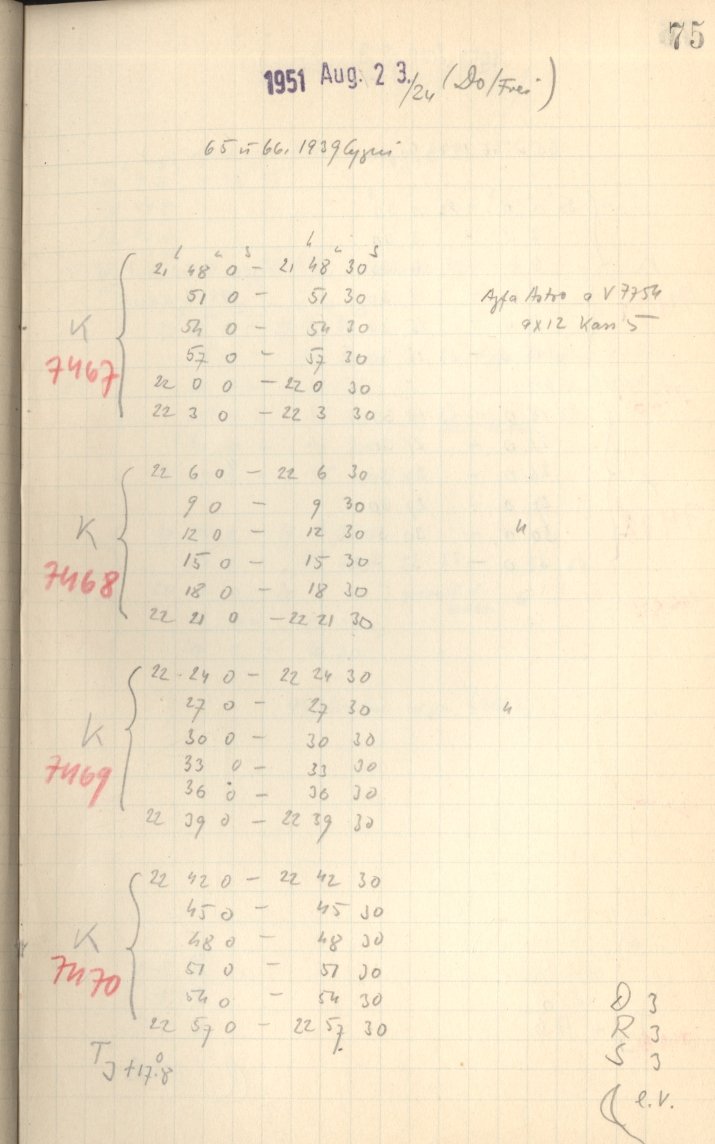 75
1951 Aug. 23./24 (Do/Frei)
65 u 66. 1939 Cygni
21h 48m 0s - 21h 48m 30s
51 0 - 51 30
Agfa Astro a V 7754
54 0 - 54 30
9x12 Kass 5
K
57 0 - 57 30
7467
22 0 0 - 22 0 30
22 3 0 - 22 3 30
22 6 0 - 22 6 30
9 0 - 9 30
K
12 0 - 12 30 "
15 0 - 15 30
7468
18 0 - 18 30
22 21 0 - 22 21 30
22 24 0 - 22 24 30
27 0 - 27 30 "
K
30 0 - 30 30
33 0 - 33 30
7469
36 0 - 36 30
22 39 0 - 22 39 30
22 42 0 - 22 42 30
45 0 - 45 30
K
48 0 - 48 30
7470
51 0 - 51 30
54 0 - 54 30
22 57 0 - 22 57 30
D 3
R 3
S 3
TJ +17°.8
e.V.